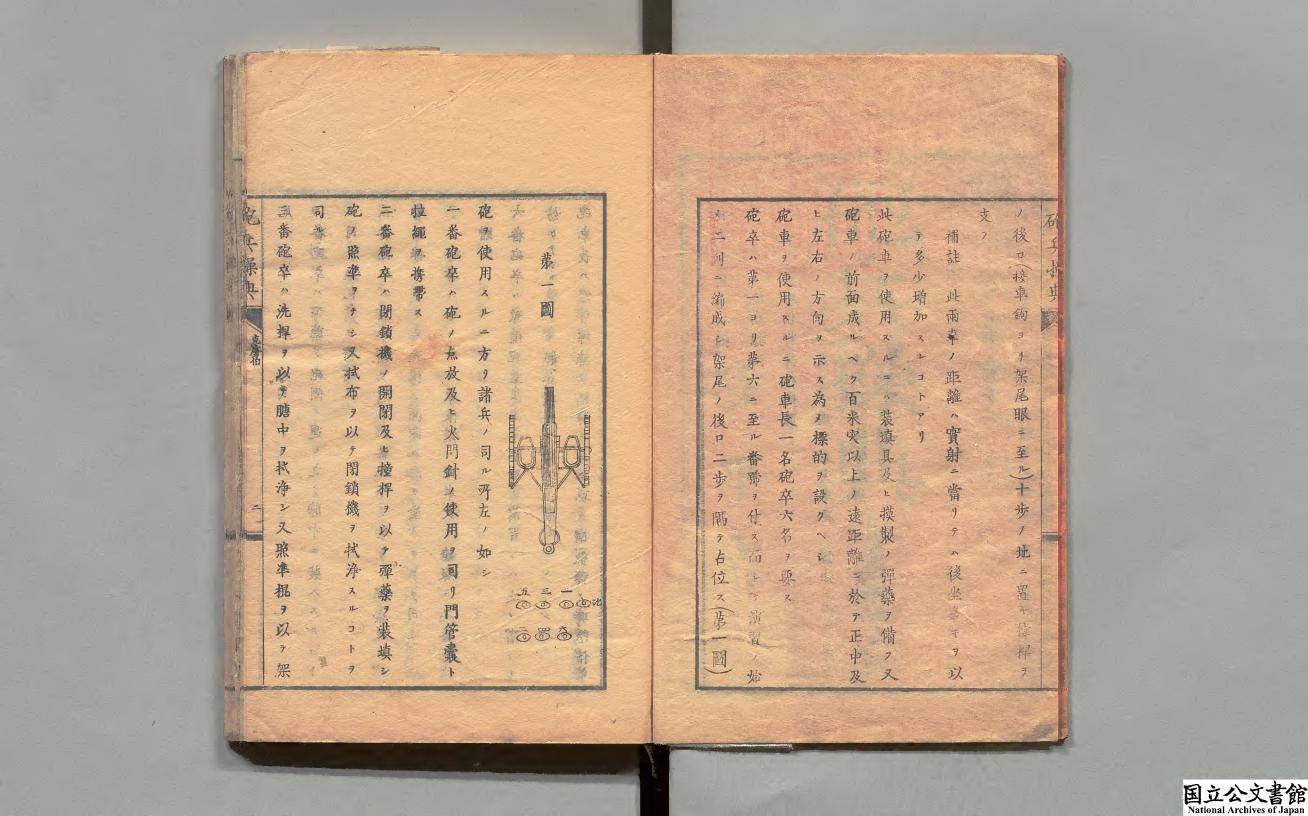 ノ後口(接車鉤ヨリ架尾眼ニ至ル)十歩ノ地ニ置キ
支フ
補註 此両車ノ距離ハ實射ニ當リテハ後坐ヲ以
テ多少増加スルコトアリ
此砲車ヲ使用スルニハ装填具及ヒ摸製ノ彈藥ヲ備フ又
砲車ノ前面成ルヘク百米突以上ノ遠距離ニ於テ正中及
ヒ左右ノ方向ヲ示ス為メ標的ヲ設クヘシ
砲車ヲ使用スルニ砲車長一名砲卒六名ヲ要ス
砲卒ハ第一ヨリ第六ニ至ル番號ヲ付ス而シテ演習ノ始
メ二列ニ編成シ架尾ノ後口二歩ヲ隔テ占位ス(第一圖)
第一圖
一
三
五
六
四
二
砲ヲ使用スルニ方リ諸兵ノ司ル所左ノ如シ
一番砲卒ハ砲ノ点放及ヒ火門針ノ使用ヲ司リ門管嚢ト
拉縄ヲ携帶ス
二番砲卒ハ閉鎖機ノ開閉及ヒ撞桿ヲ以テ彈藥ヲ装填シ
砲ノ照準ヲナシ又拭布ヲ以テ閉鎖機ヲ拭浄スルコトヲ
司ル
三番砲卒ハ洗桿ヲ以テ膅中ヲ拭浄シ又照準棍ヲ以テ架
砲兵操典
二
国立公文書館
National Archives of Japan